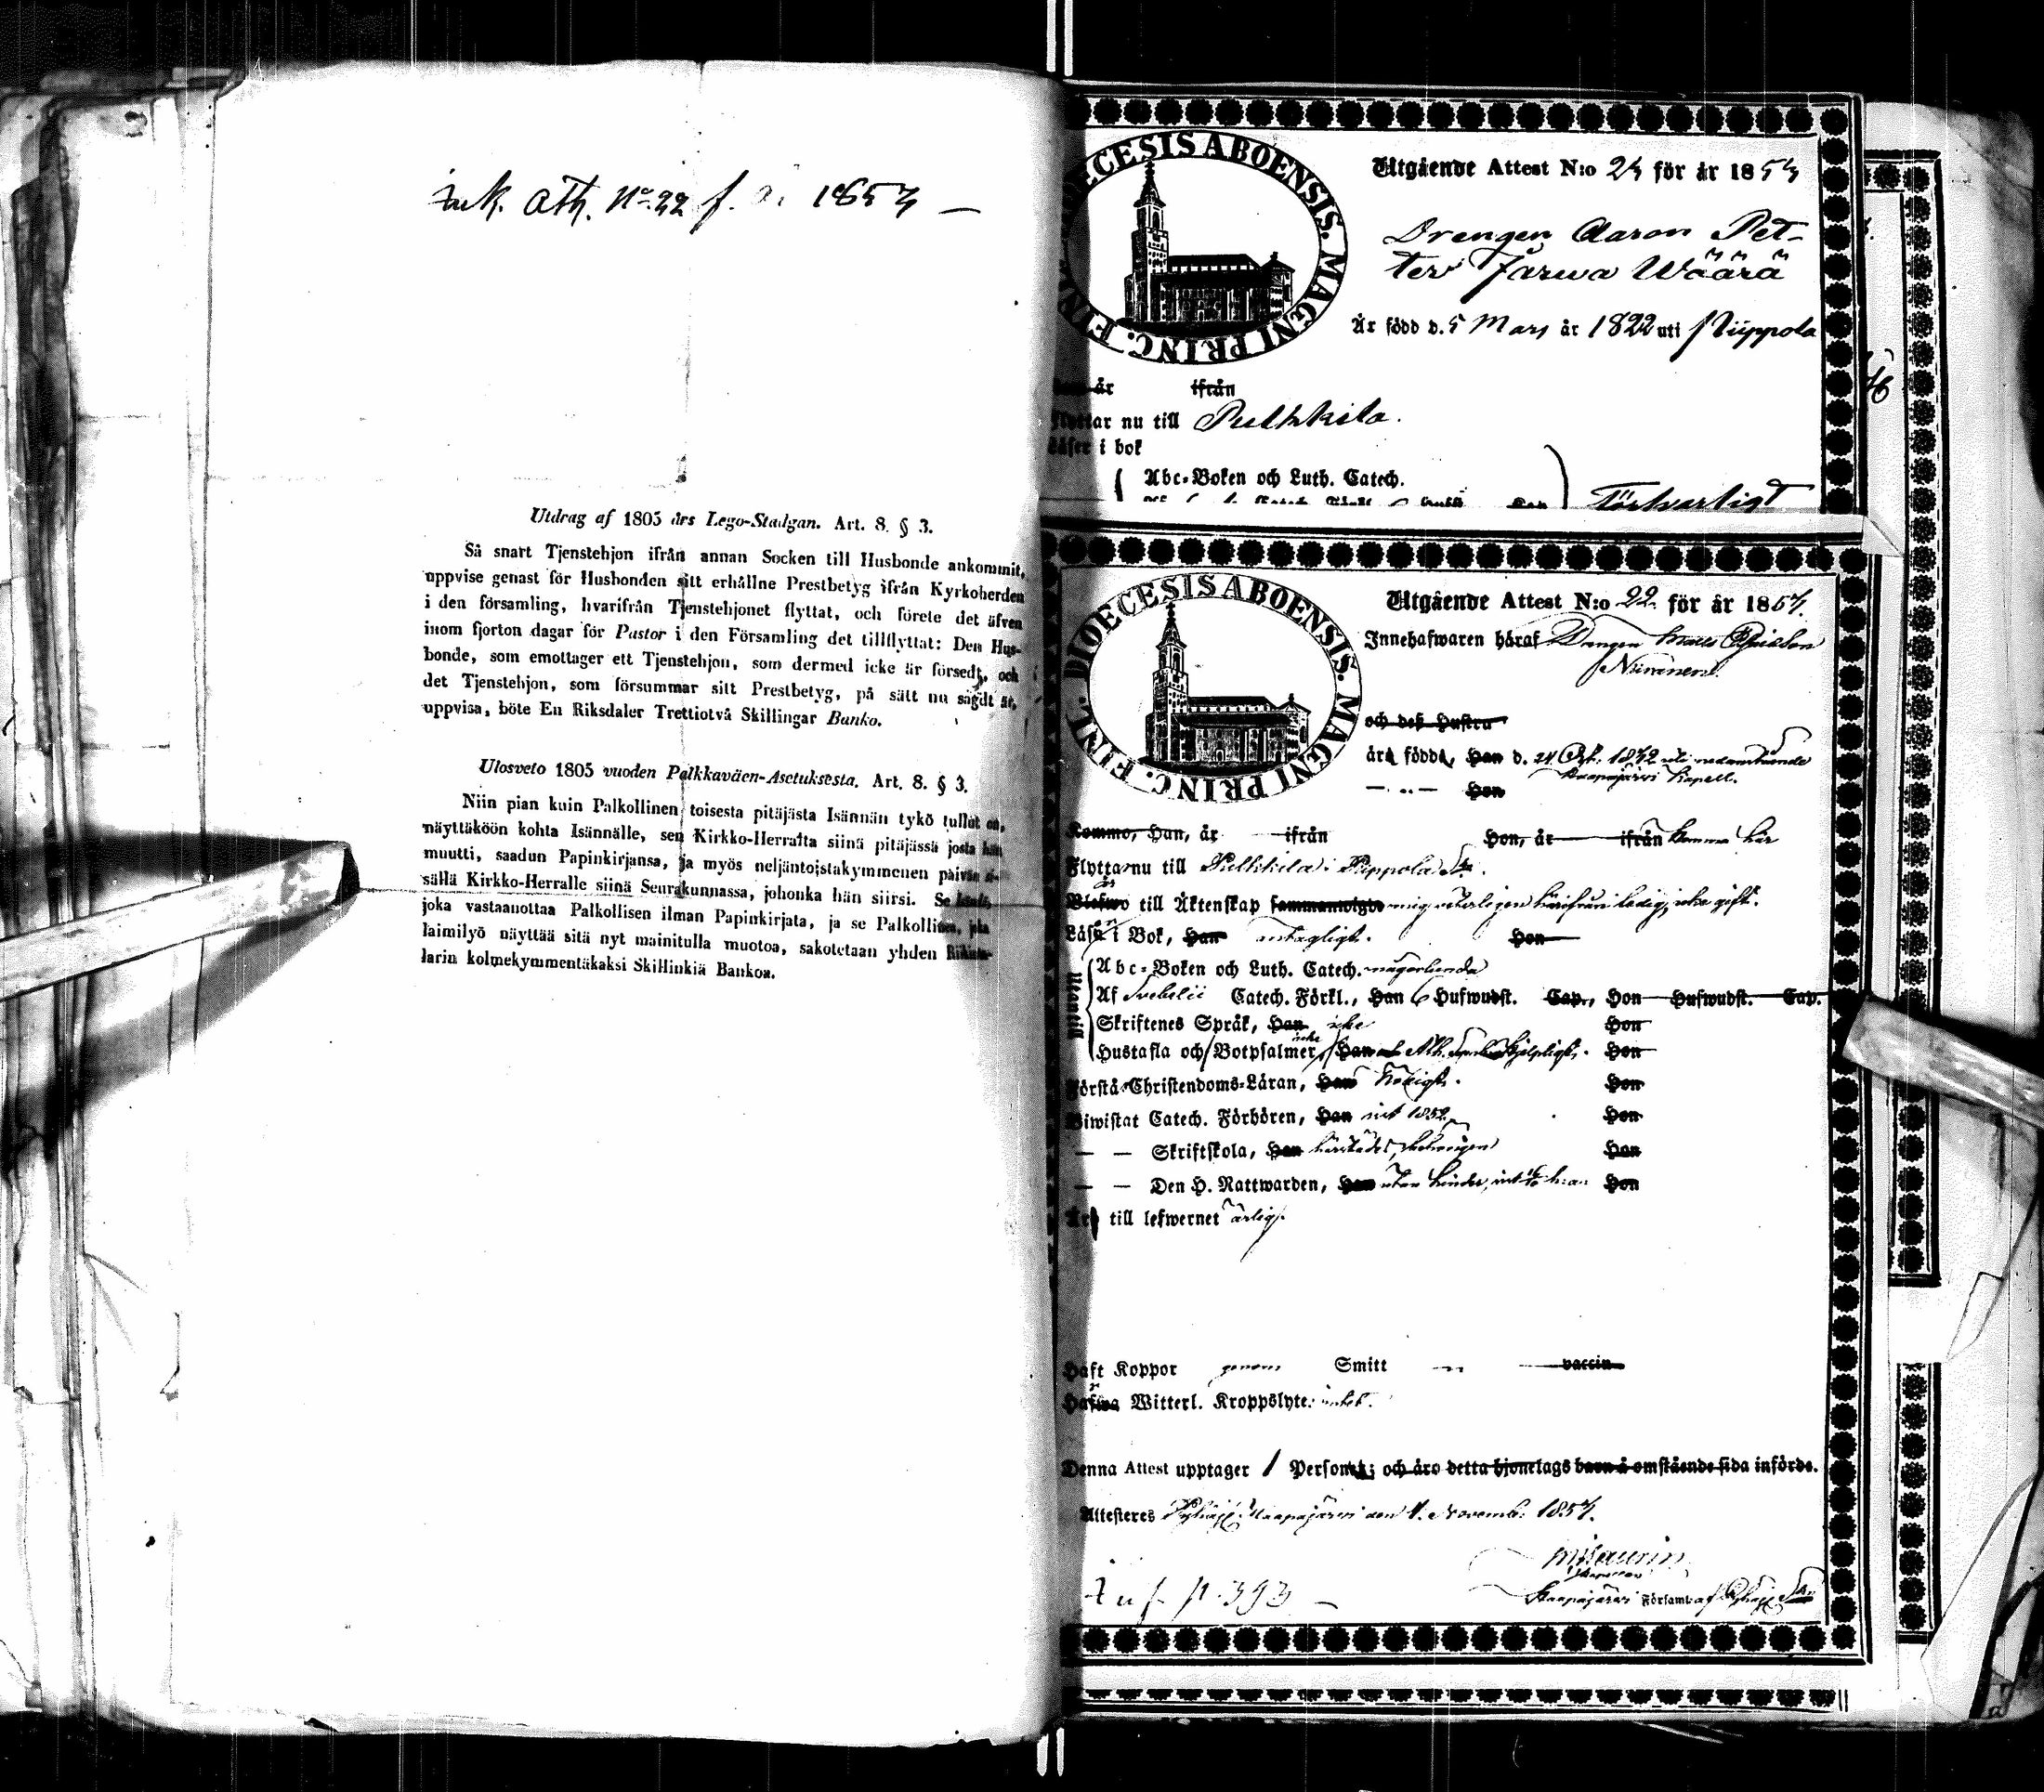 ink. att. No 22 f. å. 1853 —
Utdrag af 1805 års Lego-Stadgan. Art. 8. § 3.
Så snart Tjenstehjon ifrån annan Socken till Husbonde ankommit,
uppvise genast för Husbonden sitt erhållne Prestbetyg ifrån Kyrkoherden
i den församling, hvarifrån Tjenstehjonet flyttat, och förete det äfven
inom fjorton dagar för Pastor i den Församling det tillflyttat: Den Hus-
bonde, som emottager ett Tjenstehjon, som dermed icke är försedt, och
det Tjenstehjon, som försummar sitt Prestbetyg, på sätt nu sagdt är,
uppvisa, böte En Riksdaler Trettiotvå Skillingar Banko.
Ulosveto 1805 vuoden Palkkaväen-Asetuksesta. Art. 8. § 3.
Niin pian kuin Palkollinen toisesta pitäjästä Isännän tykö tullut on,
näyttäköön kohta Isännälle, sen Kirkko-Herralta siinä pitäjässä josta hän
muutti, saadun Papinkirjansa, ja myös neljäntoistakymmenen päivän si-
sällä Kirkko-Herralle siinä Seurakunnassa, johonka hän siirsi. Se Isäntä,
joka vastaanottaa Palkollisen ilman Papinkirjata, ja se Palkollinen, joka
laimilyö näyttää sitä nyt mainitulla muotoa, sakotetaan yhden Riikinta-
larin kolmekymmentäkaksi Skillinkiä Bankoa.
DIOECESIS ABOENSIS. MAGNI PRINC. FINL.
Utgående Attest N:o 23 för år 1853
Drengen Aaron Pet-
ter Jarwa Wäärä
Är född d. 5 Mars år 1822 uti Piippola
år ifrån
Flyttar nu till Pulkkila.
Läser i bok
Abc-Boken och Luth. Catech.
Försvarligt
DIOECESIS ABOENSIS. MAGNI PRINC. FINL.
Utgående Attest N:o 22 för år 1853.
Innehafwaren häraf Drengen Matts
Niiranen
och deß Hustru
äro födde, Han d. 24 1832
Haapajärvi Kapell.
— „ — Hon
Kommo, Han, år ifrån Hon, år ifrån
Flytta nu till Pulkkila i Piippola
till Äktenskap ledig, icke gift.
Läsa i Bok, Han antagligt. Hon
Utantill
Abc-Boken och Luth. Catech. någorlunda
Af Svebelii Catech. Förkl., Han 6 Hufwudst. Cap., Hon Hufwudst. Cap.
Skriftenes Språk, Han icke Hon
Hustafla och Botpsalmer, Han Hon
Förstå Christendoms-Läran, Han Hon
Biwistat Catech. Förhören, Han sist 1852 Hon
— — Skriftskola, Han Hon
— — Den H. Nattwarden, Han utan hinder, Hon
Äro till lefwernet ärlig.
Haft Koppor genom Smitt vaccin
Hafwa Witterl. Kroppslyte: intet.
Denna Attest upptager 1 Person; och äro detta hjonelags barn å omstående sida införde.
Attesteres Haapajärvi den 4. Novemb. 1853.
Haapajärvi Församl. af
Inf. p. 393 —